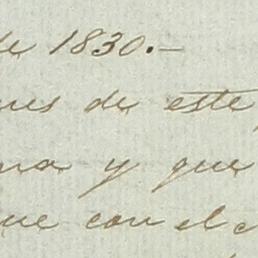 de 1830.—
ues de este
na y que
ue con el c